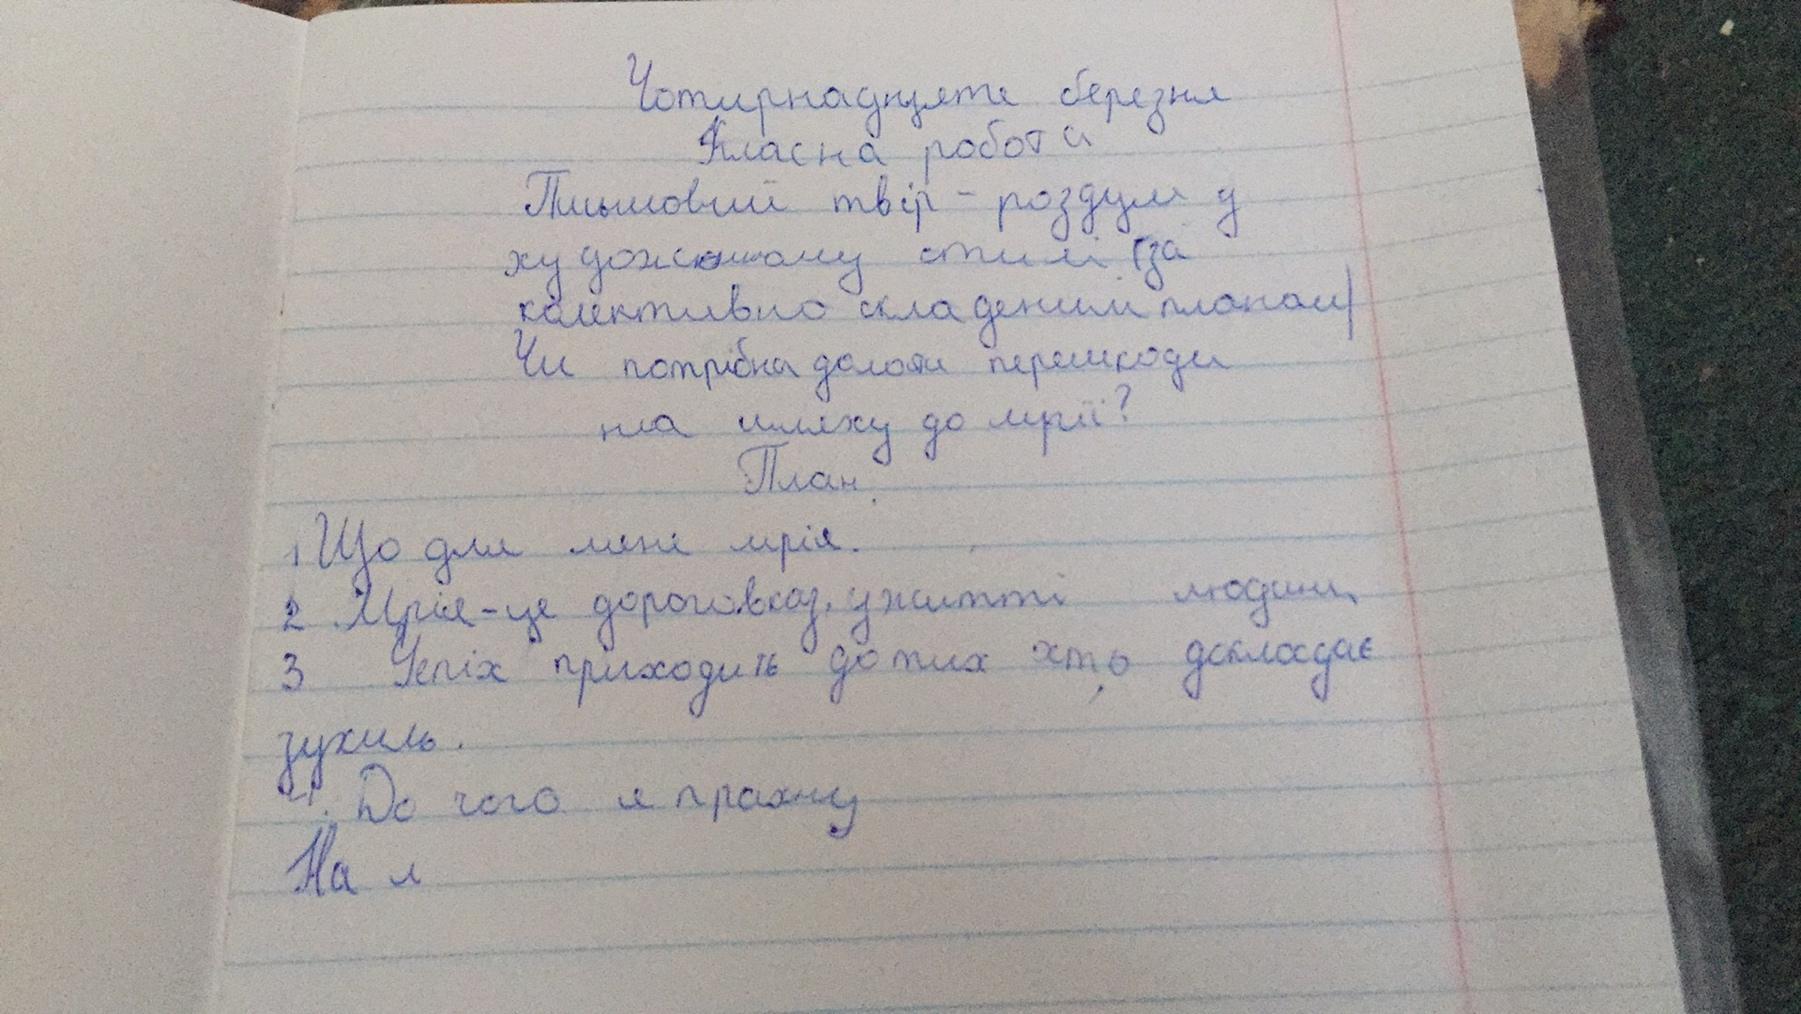 Чотирнадцяте березня
Класна робота
Письмовий твір - роздум у
художньому стилі (за
колективно складеним планом)
Чи потрібна долати перешкоди
на шляху до мрії?
План.
1 Що для мене мрія.
2. Мрія - це дороговказ у житті людини,
3 Успіх приходить до тих, хто докладає
зухиль.
4. До чого я прагну
На м